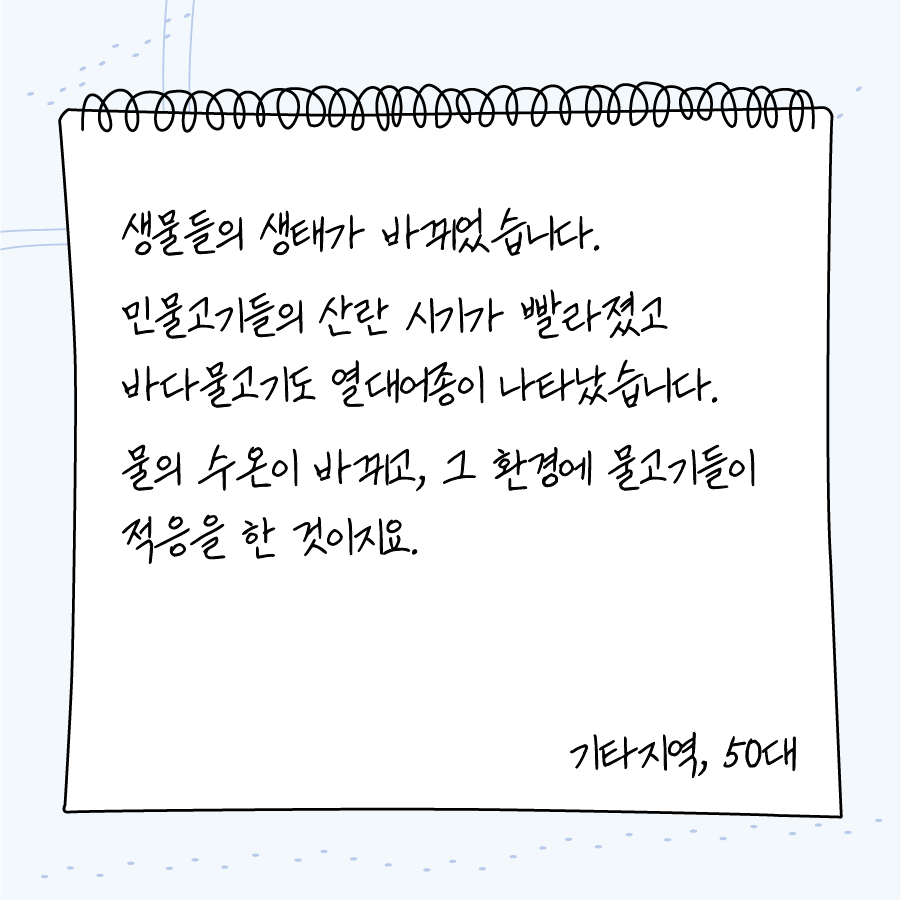 생물들의 생태가 바뀌었습니다.
민물고기들의 산란 시기가 빨라졌고
바다물고기도 열대어종이 나타났습니다.
물의 수온이 바뀌고, 그 환경에 물고기들이
적응을 한 것이지요.
기타지역, 50대